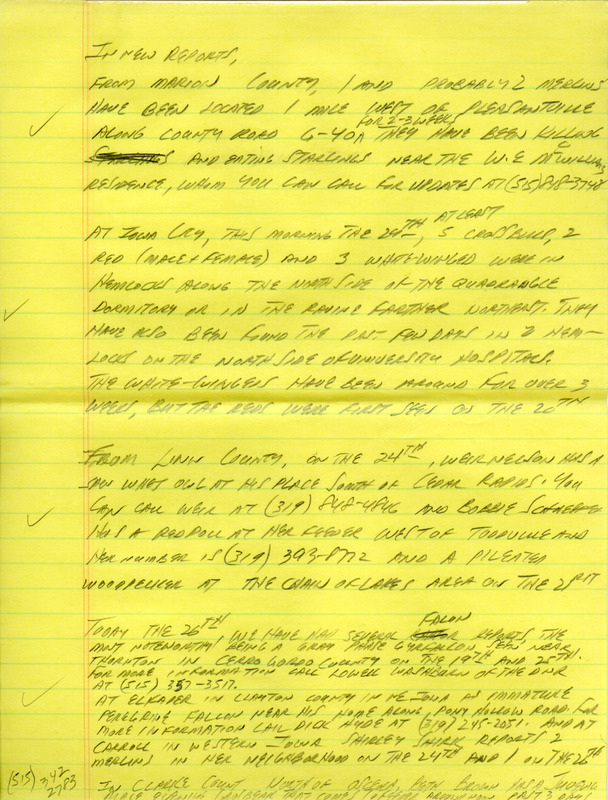 IN NEW REPORTS,
FROM MARION COUNTY, 1 AND PROBABLY 2 MERLINS
HAVE BEEN LOCATED 1 MILE WEST OF PLEASANTVILLE
FOR 2-3 WEEKS
ALONG COUNTY ROAD G-40 THEY HAVE BEEN KILLING
AND EATING STARLINGS NEAR THE W.E. McWILLIAMS
RESIDENCE, WHOM YOU CAN CALL FOR UPDATES AT (515) 848-3748
AT LEAST
AT IOWA CITY, THIS MORNING THE 24TH, 5 CROSSBILLS, 2
RED (MALE + FEMALE) AND 3 WHITE-WINGED WERE IN
HEMLOCKS ALONG THE NORTH SIDE OF THE QUADRANGLE
DORMITORY OR IN THE RAVINE FARTHER NORTHEAST. THEY
HAVE ALSO BEEN FOUND THE PAST FEW DAYS IN 2 HEM-
LOCKS ON THE NORTH SIDE OF UNIVERSITY HOSPITALS.
THE WHITE-WINGERS HAVE BEEN AROUND FOR OVER 3
WEEKS, BUT THE REDS WERE FIRST SEEN ON THE 20TH
FROM LINN COUNTY, ON THE 24TH, WEIR NELSON HAS A
SAW WHET OWL AT HIS PLACE SOUTH OF CEDAR RAPIDS. YOU
CAN CALL WEIR AT (319) 848-4846 AND BOBBIE
HAS A REDPOLL AT HER FEEDER WEST OF TODDVILLE AND
HER NUMBER IS (319) 393-8772 AND A PILEATED
WOODPECKER AT THE CHAIN OF LAKES AREA ON THE 21ST
FALCON
TODAY THE 26TH, WE HAVE HAD SEVERAL REPORTS, THE
MOST NOTEWORTHY BEING A GRAY PHASE GYRFALCON SEEN NEAR
THORNTON IN CERRO GORDO COUNTY ON THE 19TH AND 25TH.
FOR MORE INFORMATION CALL LOWELL WASHBURN OF THE DNR
AT (515) 357-3517.
AT ELKADER IN CLAYTON COUNTY IN NE IOWA AN IMMATURE
PEREGRINE FALCON NEAR HIS HOME ALONG PONY HOLLOW ROAD. FOR
MORE INFORMATION CALL DICK HYDE AT (319) 245-2051. AND AT
CARROLL IN WESTERN IOWA SHIRLEY SHIRK REPORTS 2
MERLINS IN HER NEIGHBORHOOD ON THE 24TH AND 1 ON THE 26TH
(515) 342
2783
IN CLARKE COUNTY NORTH OF OSCEOLA, BOTH BROWN AND A